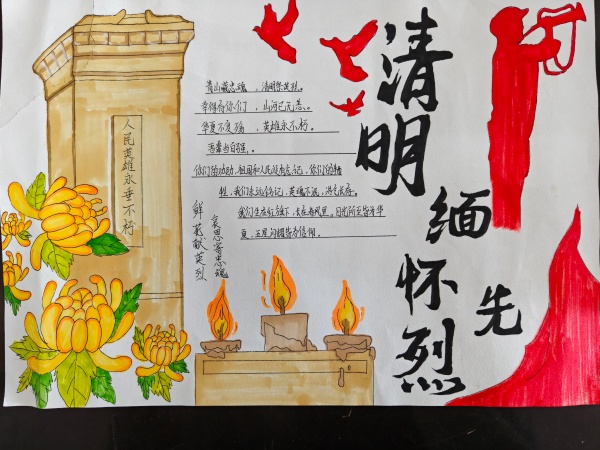 清明
缅怀
先烈
人民英雄永垂不朽
青山藏忠魂，清明祭英烈。
幸得有你们，山河已无恙。
华夏不复殇，英雄永不朽。
吾辈当自强。
你们的功勋，祖国和人民没有忘记，你们的牺
牲，我们永远铭记，英魂不泯，浩气长存。
我们生在红旗下，长在春风里。目光所至皆为华
夏，五星闪耀皆为信仰。
哀思寄忠魂
鲜花献英烈